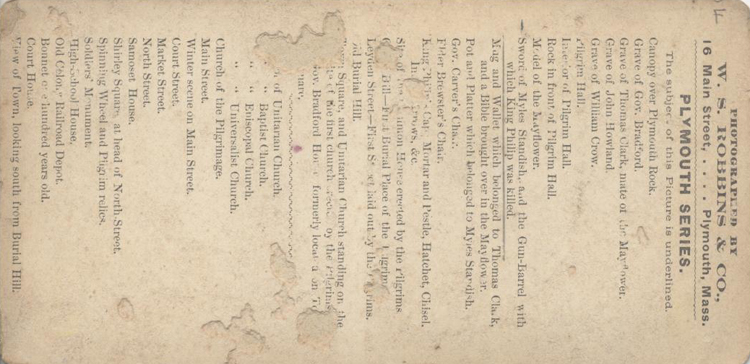 4
PHOTOGRAPHED BY
W. S. ROBBINS & CO.,
16 Main Street, . . . . Plymouth, Mass.
PLYMOUTH SERIES.
The subject of this Picture is underlined.
Canopy over Plymouth Rock.
Grave of Gov. Bradford.
Grave of Thomas Clark, mate of the Mayflower.
Grave of John Howland.
Grave of William Crow.
Pilgrim Hall.
Interior of Pilgrim Hall.
Rock in front of Pilgrim Hall.
Model of the Mayflower.
Sword of Myles Standish, and the Gun-Barrel with
which King Philip was killed.
Mug and Wallet which belonged to Thomas Clark,
and a Bible brought over in the Mayflower.
Pot and Platter which belonged to Myles Standish.
Gov. Carver's Chair.
Elder Brewster's Chair.
King Philip's Cap, Mortar and Pestle, Hatchet, Chisel,
Arrows, &c.
Site of the Common House erected by the Pilgrims
Hill—First Burial Place of the Pilgrims
Leyden Street—First Street laid out by the Pilgrims.
Old Burial Hill.
Square, and Unitarian Church standing on the
site of the first church by the Pilgrims
Gov. Bradford House formerly located on
Square.
of Unitarian Church.
" " Baptist Church.
" " Episcopal Church.
" " Universalist Church.
Church of the Pilgrimage.
Main Street.
Winter scene on Main Street.
Court Street.
Market Street.
North Street.
Samoset House.
Shirley Square, at head of North Street.
Spinning Wheel and Pilgrim relics.
Soldiers' Monument.
High-School House.
Old Colony Railroad Depot.
Bonnet one hundred years old.
Court House.
View of Town, looking south from Burial Hill.